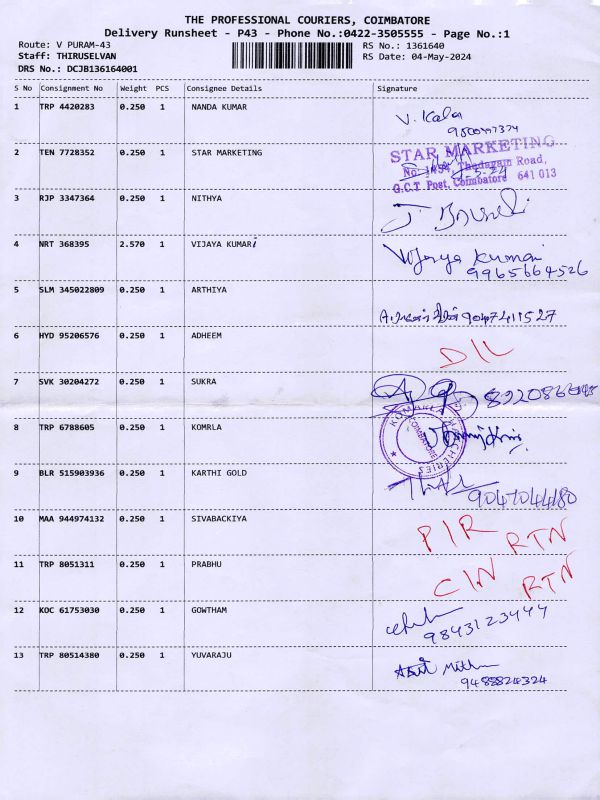 THE PROFESSIONAL COURIERS, COIMBATORE
Delivery Runsheet - P43 - Phone No.:0422-3505555 - Page No.:1
Route: V PURAM-43
RS No.: 1361640
Staff: THIRUSELVAN
RS Date: 04-May-2024
DRS No.: DCJB136164001
S No Consignment No Weight PCS Consignee Details Signature
1 TRP 4420283 0.250 1 NANDA KUMAR V. Kala
2 TEN 7728352 0.250 1 STAR MARKETING STAR MARKETING
Thadagam Road,
G.C.T Post, Coimbatore 641 013
3 RJP 3347364 0.250 1 NITHYA
4 NRT 368395 2.570 1 VIJAYA KUMARi Vijaya Kumari
9965664526
5 SLM 345022809 0.250 1 ARTHIYA 9047411527
6 HYD 95206576 0.250 1 ADHEEM D/L
7 SVK 30204272 0.250 1 SUKRA
8 TRP 6788605 0.250 1 KOMRLA COIMBATORE
9 BLR 515903936 0.250 1 KARTHI GOLD
9047044180
10 MAA 944974132 0.250 1 SIVABACKIYA P/R RTN
11 TRP 8051311 0.250 1 PRABHU C/N RTN
12 KOC 61753030 0.250 1 GOWTHAM
9843123444
13 TRP 80514380 0.250 1 YUVARAJU
9488824324